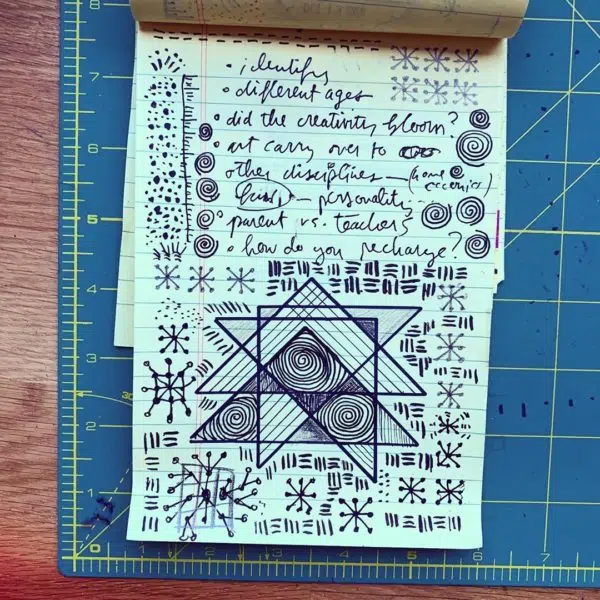 • identify
• different ages
• did the creativity bloom?
• art carry over to
other disciplines — (home
eccenrics)
— personality
• parent vs. teachers
• how do you recharge?
8
7
6
5
4
3
2
1
0
1
2
3
4
5
6
7